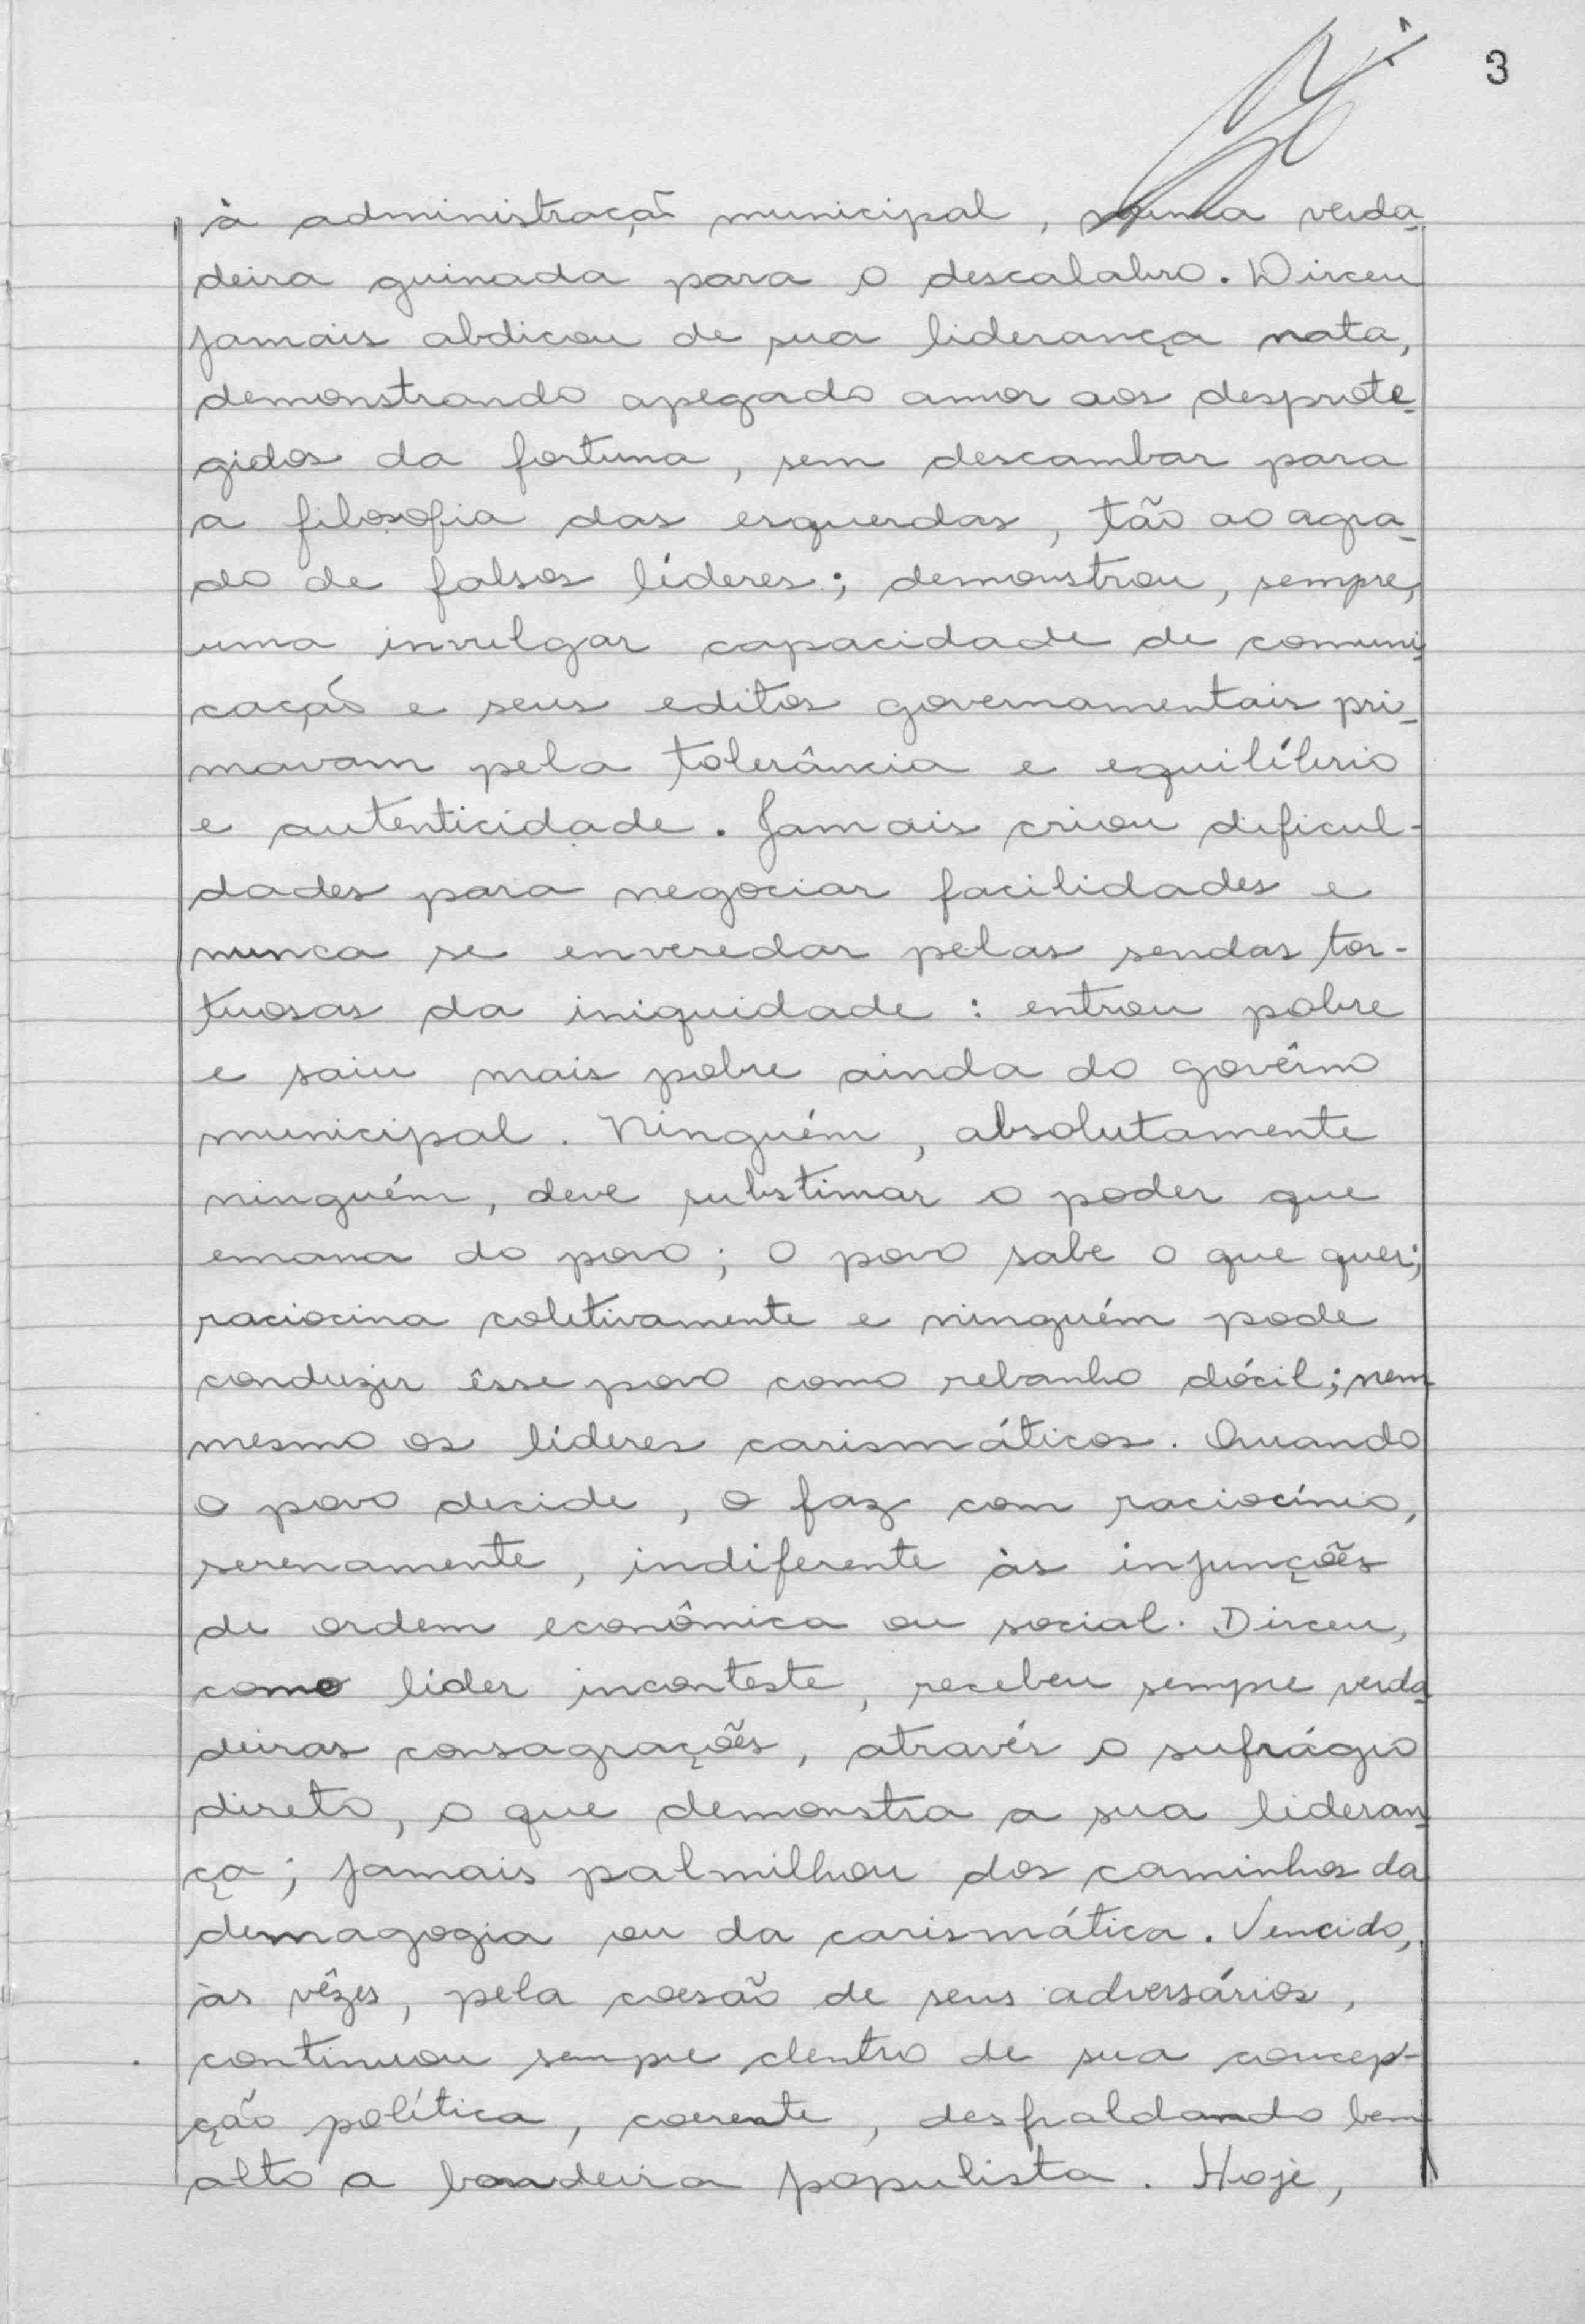 3
à administração municipal, numa verda-
deira guinada para o descalabro. Dirceu
jamais abdicou de sua liderança nata,
demonstrando apegado amor aos desprote-
gidos da fortuna, sem descambar para
a filosofia das esquerdas, tão ao agra-
do de falsos líderes; demonstrou, sempre,
uma invulgar capacidade de comuni-
cação e seus editos governamentais pri-
mavam pela tolerância e equilíbrio
e autenticidade. Jamais criou dificul-
dades para negociar facilidades e
nunca se enveredar pelas sendas tor-
tuosas da iniquidade : entrou pobre
e saiu mais pobre ainda do govêrno
municipal. Ninguém, absolutamente
ninguém, deve substimar o poder que
emana do povo; o povo sabe o que quer;
raciocina coletivamente e ninguém pode
conduzir êsse povo como rebanho dócil; nem
mesmo os líderes carismáticos. Quando
o povo decide, o faz com raciocínio,
serenamente, indiferente às injunções
de ordem econômica ou social. Dirceu,
como líder inconteste, recebeu sempre verda-
deiras consagrações, através o sufrágio
direto, o que demonstra a sua lideran-
ça; jamais palmilhou dos caminhos da
demagogia ou da carismática. Vencido,
às vêzes, pela coesão de seus adversários,
continuou sempre dentro de sua concep-
ção política, coerente, desfraldando bem
alto a bandeira populista. Hoje,